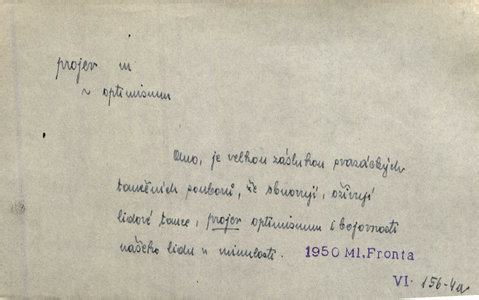 projev m
~ optimismu
Ano, je velkou zásluhou svazáckých
tanečních souborů, že obnovují, oživují
lidové tance, projev optimismu i bojovnosti
našeho lidu v minulosti.
1950 Ml. Fronta
VI. 156-4a